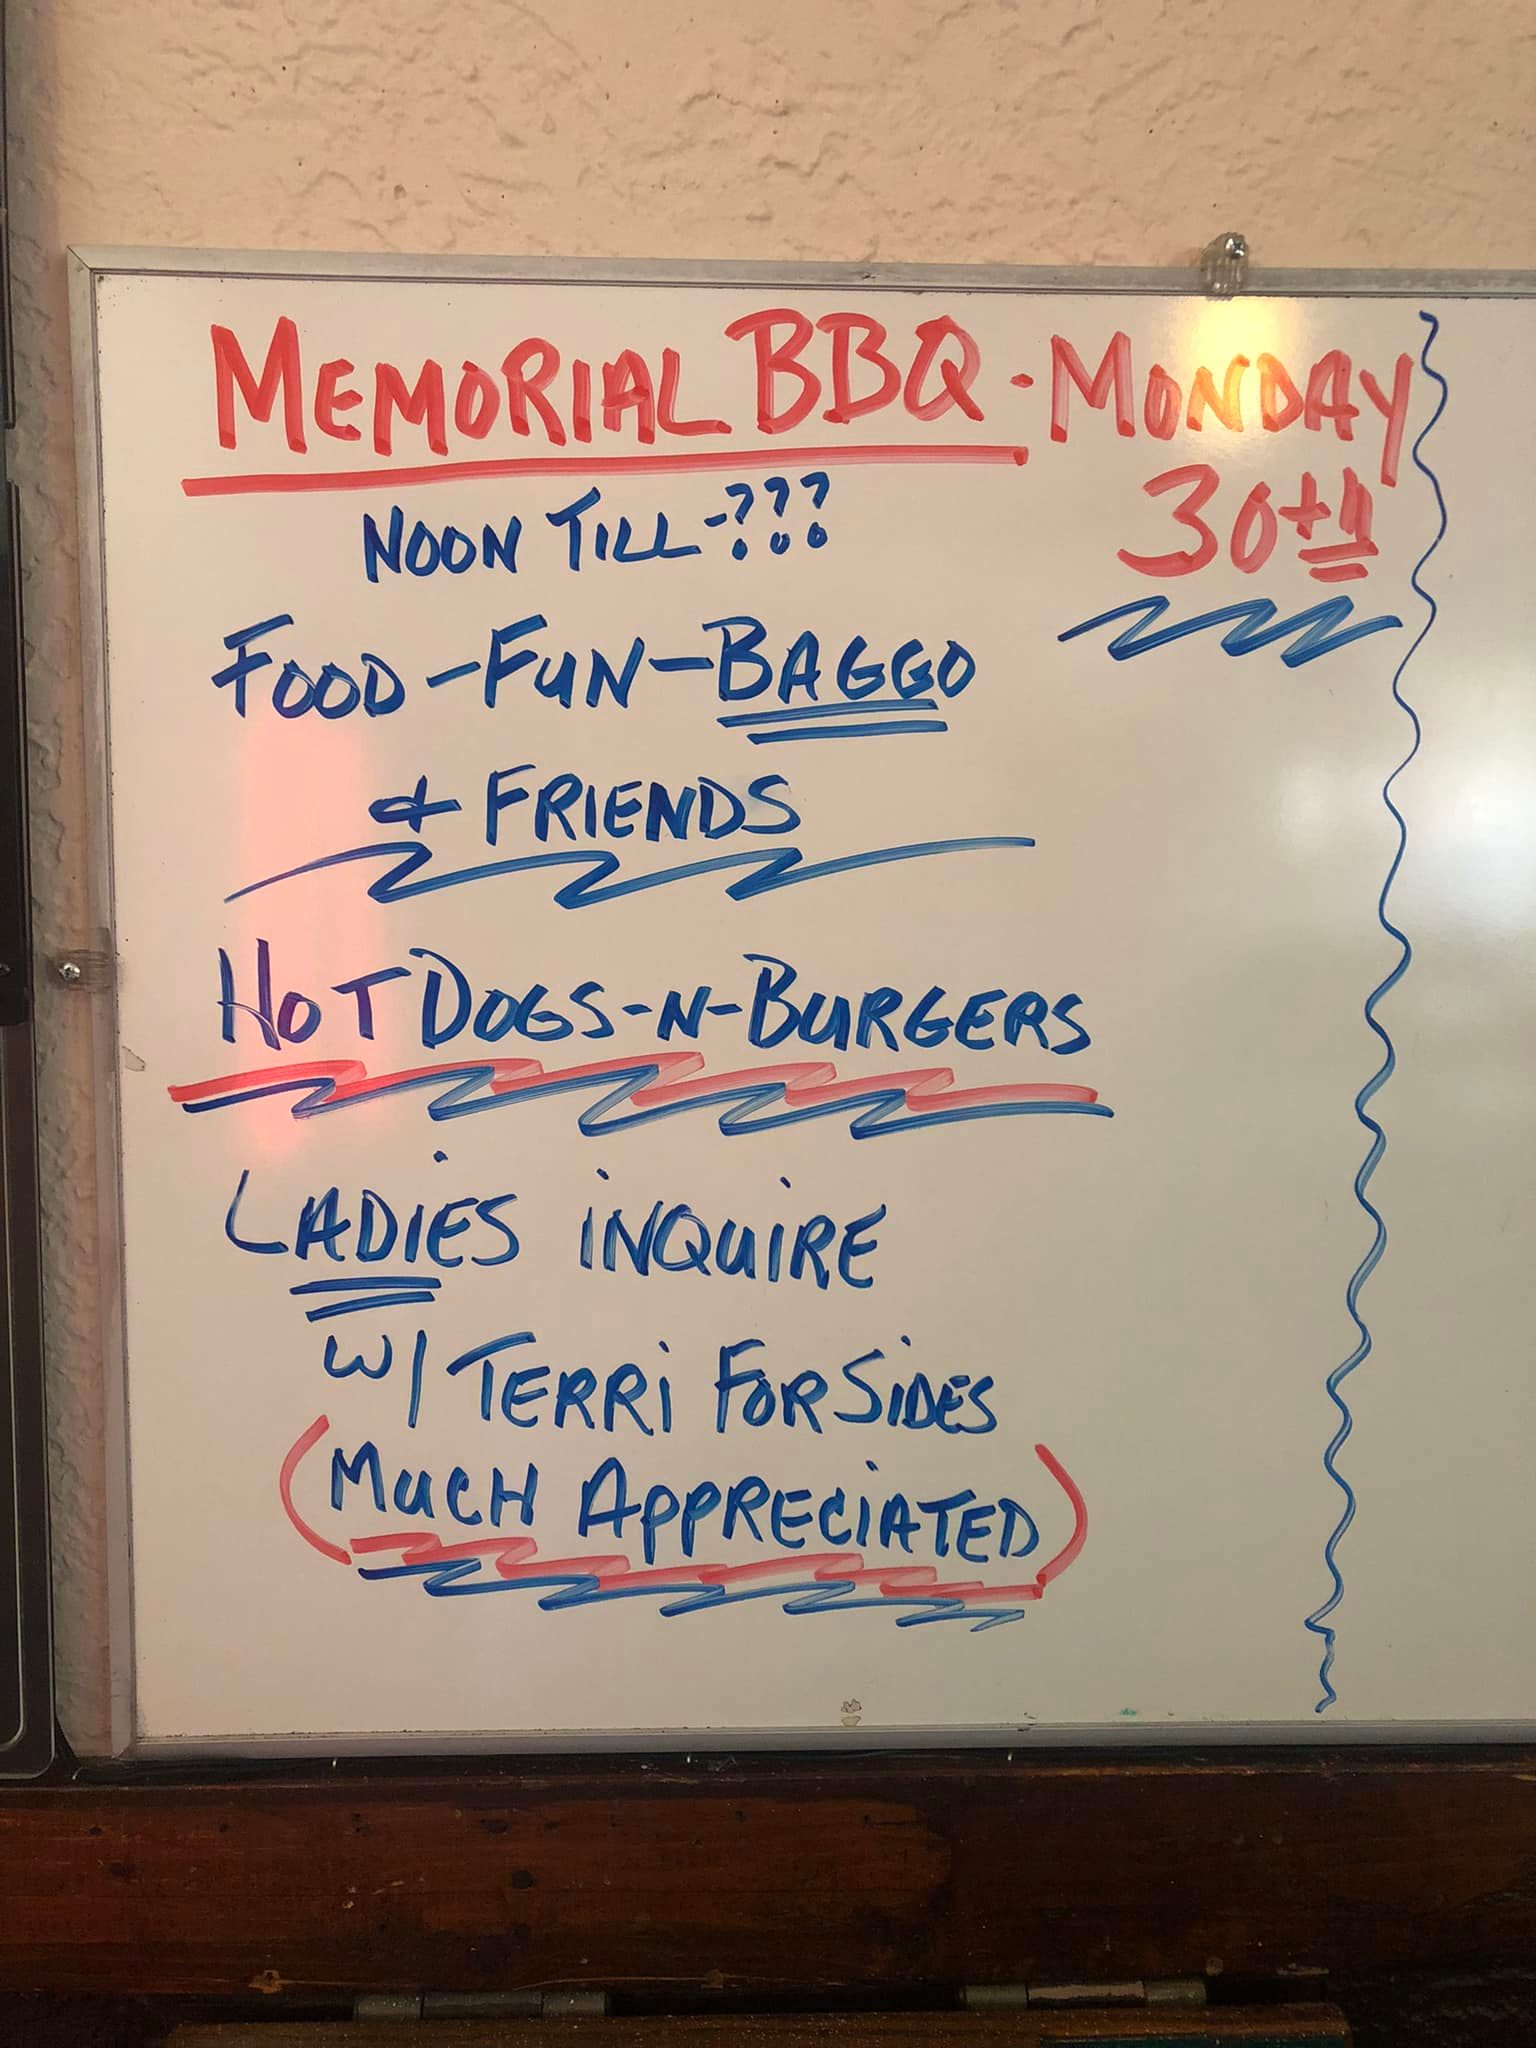 MEMORIAL BBQ - MONDAY
30th
NOON TILL-???
FOOD-FUN-BAGGO
& FRIENDS
HOT DOGS-N-BURGERS
LADIES INQUIRE
W/ TERRI FOR SIDES
(MUCH APPRECIATED)